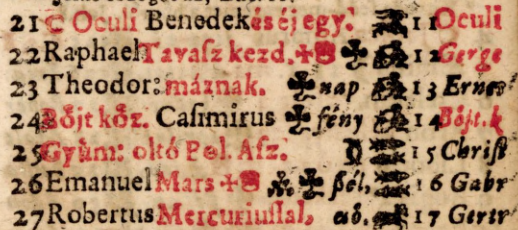 21 C Oculi Benedek és éj egy. 11 Oculi
22 Raphael Tavaſz kezd. 12 Gerge
23 Theodor: máznak. nap 13 Ernes
24 Bőjt kőz. Caſimirus fény 14 Bőjt. k
25 Gyüm: oltó Pol. Aſz. 15 Chriſt
26 Emanuel Mars ſzél, 16 Gabr
27 Robertus Mercuriuſſal, ad. 17 Gertr